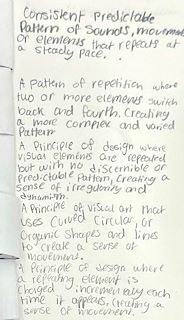 Consistent Predictable
Pattern of Sounds, movement
or elements that repeats at
a steady pace.
A Pattern of repetition where
two or more elements switch
back and fourth, Creating
a more complex and varied
Pattern
A Principle of design where
visual elements are repeated
but with no discernible or
Predictable Pattern, Creating a
sense of irregularity and
dynamism.
A Principle of visual art that
uses Curved Circular, or
Organic Shapes and lines
to create a sense of
movement.
A Principle of design where
a repeating element is
changed incrementally each
time it appears, Creating a
sense of movement.